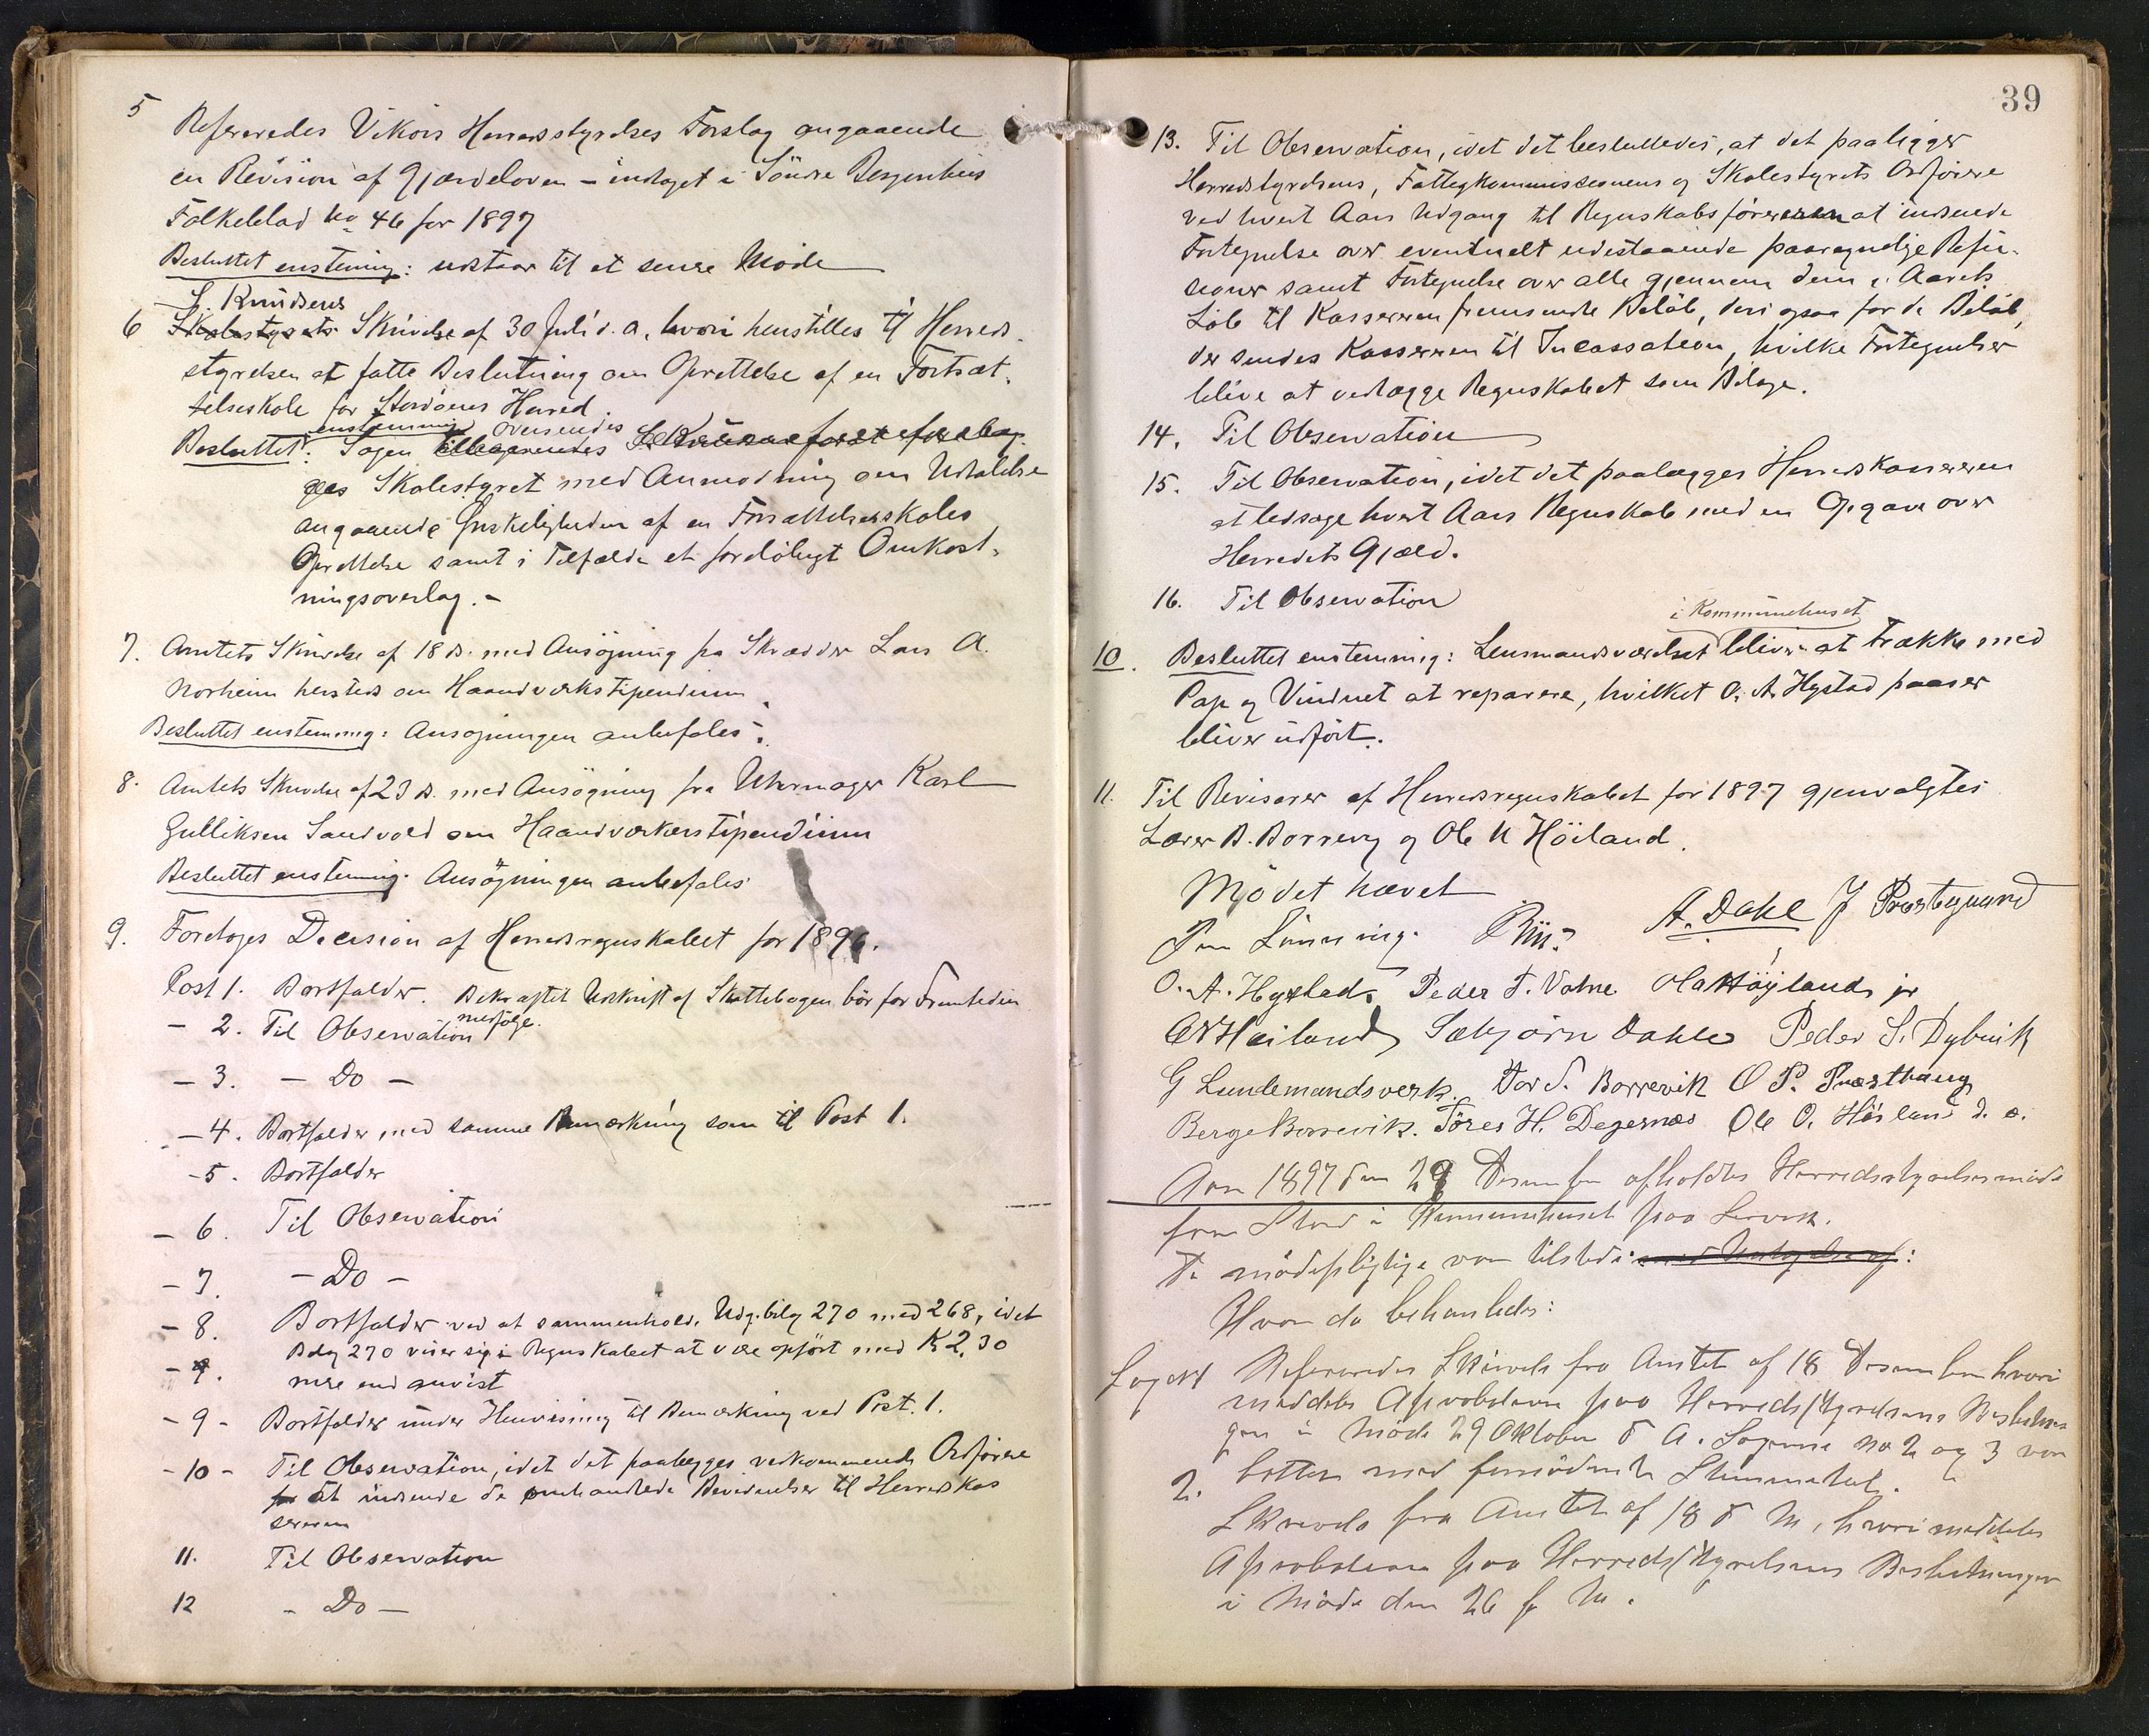 5 Refereredes Vikörs Herredsstyrelses Forslag angaaende
en Revision af Gjærdeloven – indtaget i Söndre Bergenhus
Folkeblad No 46 for 1897
Besluttet enstemmig: udstaar til et senere Möde
L. Knudsens
6 Skolestyrets Skrivelse af 30 Juli d. a. hvori henstilles til Herreds-
styrelsen at fatte Beslutning om Oprettelse af en Fortsæt-
telseskole for Stordöens Herred.
enstemmig oversendes
Besluttet: Sagen
Skolestyret med Anmodning om Udtalelse
angaaende Önskeligheden af en Forsættelsesskoles
Oprettelse samt i Tilfælde et forelöbigt Omkost-
ningsoverlag. –
7. Amtets Skrivelse af 18 ds. med Ansögning fra Skrædder Lars A.
Norheim hersteds om Haandverkstipendium.
Besluttet enstemmig: Ansögningen anbefales.
8. Amtets Skrivelse af 23 ds. med Ansögning fra Uhrmager Karl
Gulliksen Sandvold om Haandverkerstipendium
Besluttet enstemmig. Ansögningen anbefales
9. Foretoges Decision af Herredsregnskabet for 1896.
Post 1. Bortfalder. Bekræftet Udskrift af Skattebogen bör for Fremtiden
medfölge.
– 2. Til Observation
– 3. – Do –
– 4. Bortfalder med samme Bemærkning som til Post 1.
– 5. Bortfalder
– 6. Til Observation
– 7. – Do –
– 8. Bortfalder ved at sammenholde Udg.bilag 270 med 268, idet
Bilag 270 viser sig i Regnskabet at være opfört med K 2,30
mere end anvist
– 9 – Bortfalder under Henvisning til Bemærkning ved Post. 1.
– 10 – Til Observation, idet det paalægges vedkommende Ordförere
for at indsende de omhandlede Bevidnelser til Herredskas
sereren
11. Til Observation
12 – Do –
39
13. Til Observation, idet det besluttedes, at det paaligger
Herredstyrelsens, Fattigkommissionens og Skolestyrets Ordförere
ved hvert Aars Udgang til Regnskabsföreren at indsende
Fortegnelse over eventuelt udestaaende paaregnelige Refu-
sioner samt Fortegnelse over alle gjennem dem i Aarets
Löb til Kassereren fremsendte Belöb, deri ogsaa for de Belöb,
der sendes Kassereren til Incassation, hvilke Fortegnelser
blive at vedlægge Regnskabet som Bilage.
14. Til Observation
15. Til Observation, idet det paalægges Herredskassereren
at ledsage hvert Aars Regnskab med en Opgave over
Herredets Gjæld.
16. Til Observation
i Kommunehuset
10. Besluttet enstemmig: Lensmandsværelset bliver at trække med
Pap og Vinduet at reparere, hvilket O. A. Hystad paaser
bliver udfört.
11. Til Revisorer af Herredsregnskabet for 1897 gjenvalgtes
Lærer B. Borrevig og Ole N Höiland.
Mödet hævet
Lönning. A. Dahl J Prestegaard
O. A. Hystad. Peder T. Valne Ola Höyland jr
Höiland Sæbjörn Dahle Peder S. Dybvik
G Lundemandsverk. Tor S. Borrevik O P. Præsthaug
Berge Borrevik. Töres H. Degernæs Ole O. Höiland d. æ.
Aar 1897 den 29 Desember afholdtes Herredsstyrelsesmöde
for Stord i Kommunehuset paa Lervik.
De mödepligtige var tilstede :
Hvor da behandledes:
Sag no 1 Refereredes Skrivelse fra Amtet af 18 Desember hvori
meddeles Approbation paa Herredsstyrelsens Beslutnin
gen i Möde 29 Oktober d A. Sagerne No 2 og 3 var
fattet med fornödent Stemmetal.
2. Skrivelse fra Amtet af 18 d M, hvori meddeles
Approbation paa Herredsstyrelsens Beslutninger
i Möde den 26 f M.